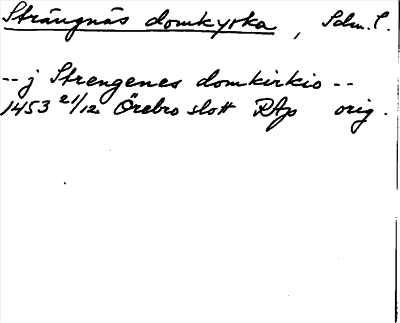 Strängnäs domkyrka, Sdm. l.
-- j Strengenes domkirkio --
1453 21/12 Örebro slott RAp orig.